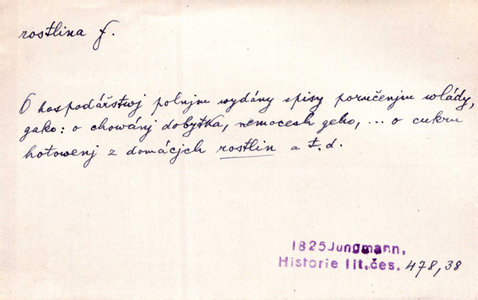 rostlina f.
O hospodářstwj polnjm wydány spisy poručenjm wlády,
gako: o chowánj dobytka, nemocech geho, ... o cukru
hotowenj z domácjch rostlin a t. d.
1825 Jungmann,
Historie lit.čes. 478,38